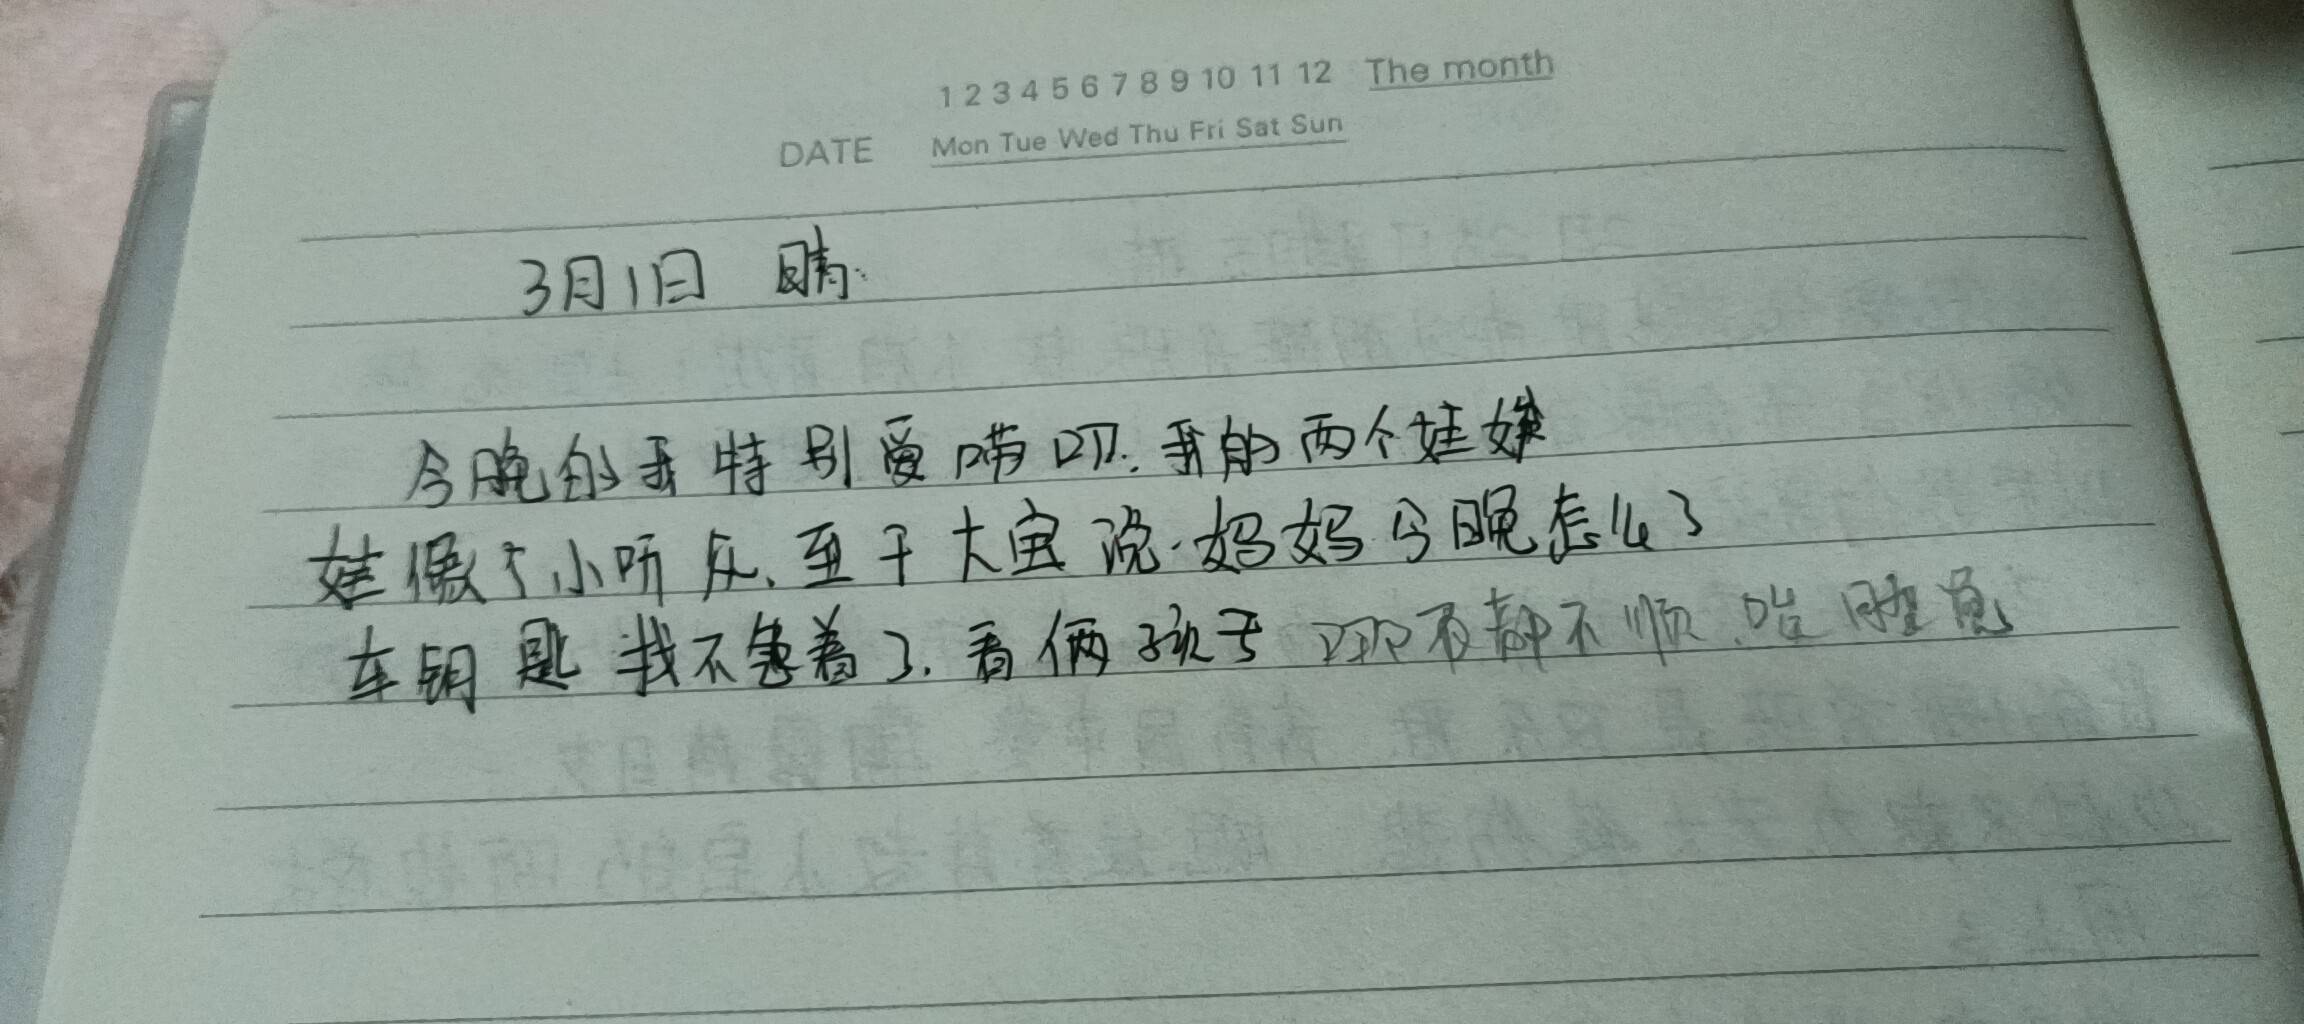 1 2 3 4 5 6 7 8 9 10 11 12 The month
DATE Mon Tue Wed Thu Fri Sat Sun
3月1日 晴.
今晚的我特别爱唠叨.我的两个娃娃
娃像个小听从.至于大宝说.妈妈今晚怎么了
车钥匙找不急着了.看俩孩子 哪都不顺